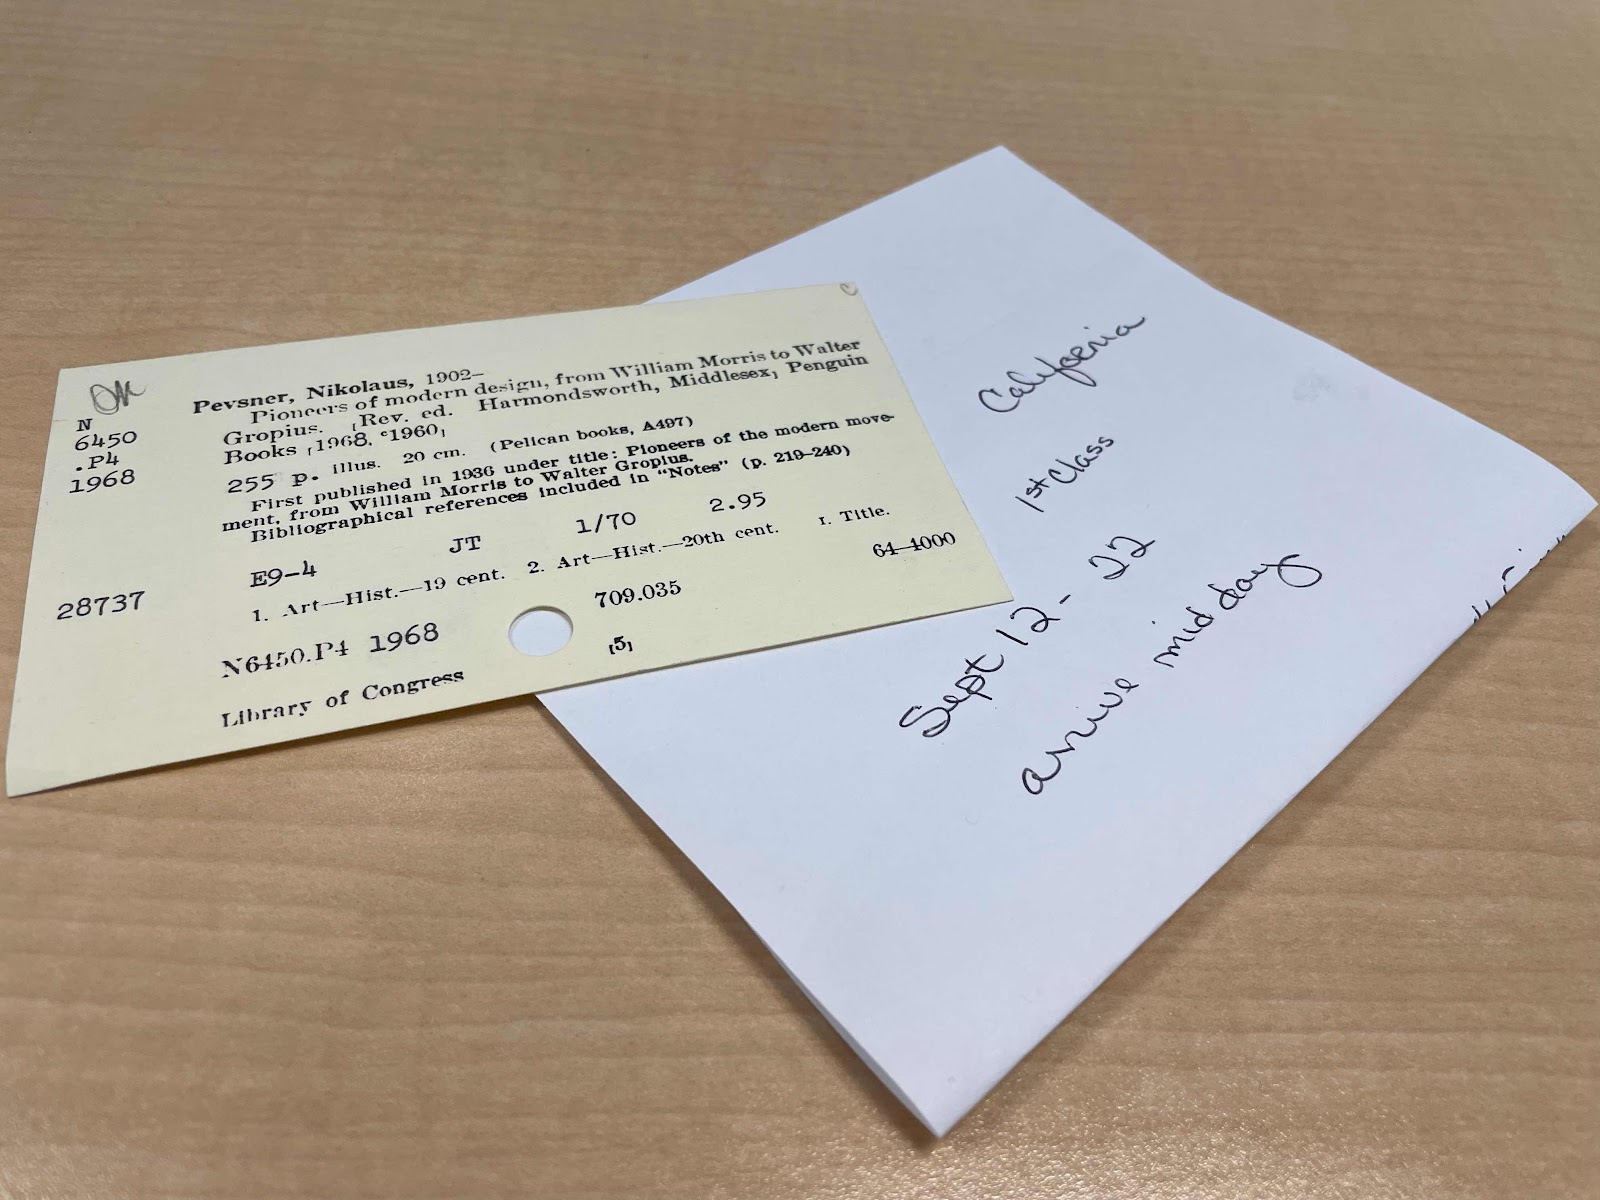 c
N
6450
.P4
1968
28737
Pevsner, Nikolaus, 1902–
Pioneers of modern design, from William Morris to Walter
Gropius. [Rev. ed. Harmondsworth, Middlesex] Penguin
Books [1968, ᶜ1960]
255 p. illus. 20 cm. (Pelican books, A497)
First published in 1936 under title: Pioneers of the modern move-
ment, from William Morris to Walter Gropius.
Bibliographical references included in "Notes" (p. 219-240)
E9-4 JT 1/70 2.95
1. Art—Hist.—19 cent. 2. Art—Hist.—20th cent. I. Title.
N6450.P4 1968 709.035 64-4000
Library of Congress [5]
California
1st Class
Sept 12 - 22
arrive midday